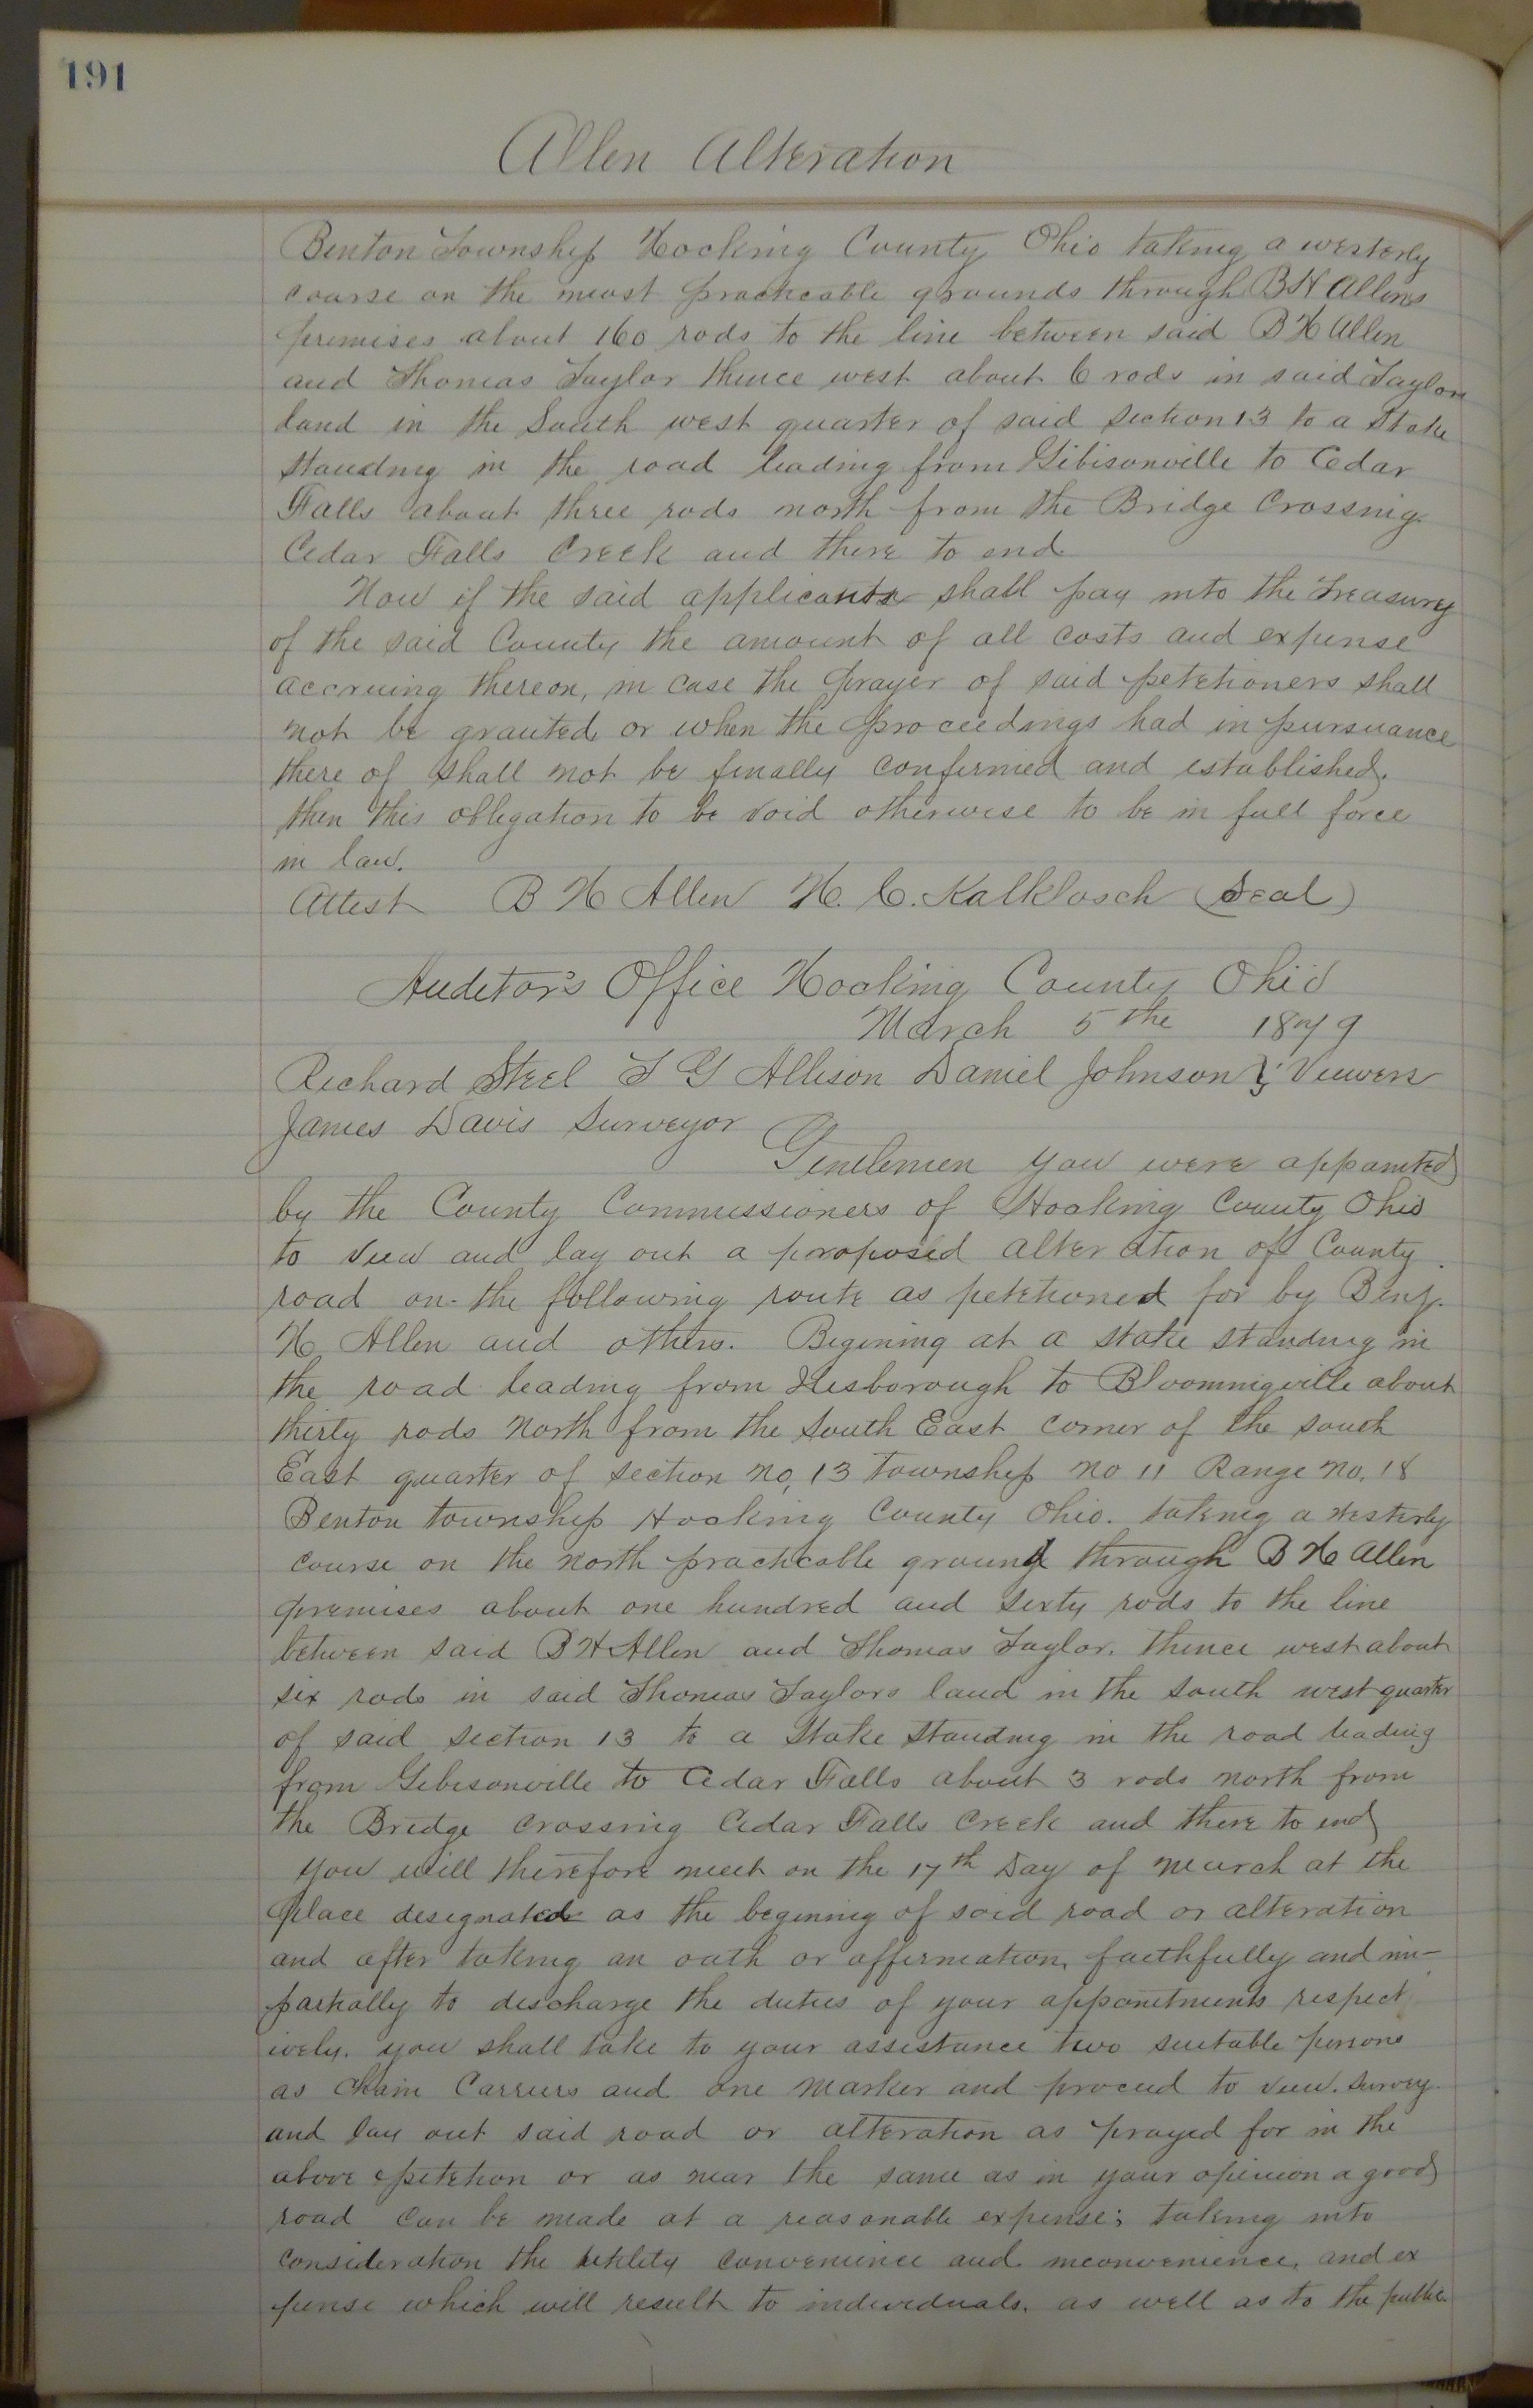 191
Allen Alteration
Benton Township Hocking County Ohio taking a westerly
course on the most practicable grounds through B H Allens
premises about 160 rods to the line between said B H Allen
and Thomas Taylor thence west about 6 rods in said Taylors
land in the South west quarter of said section 13 to a Stake
standing in the road leading from Gibisonville to Cedar
Falls about three rods north from the Bridge Crossing
Cedar Falls Creek and there to end
Now if the said applicants shall pay into the Treasury
of the said County the amount of all costs and expense
accruing thereon, in case the prayer of said petetioners shall
not be granted or when the proceedings had in pursuance
there of shall not be finally confirmed and established.
then this obligation to be void otherwise to be in full force
in law.
Attest B H Allen H. C. Kalklosch (Seal)
Auditor's Office Hocking County Ohio
March 5the 1879
Richard Steel T G Allison Daniel Johnson } Viewers
James Davis Surveyor
Gentlemen you were appointed
by the County Commissioners of Hocking County Ohio
to view and lay out a proposed alteration of County
road on the following route as petetioned for by Benj.
H Allen and others. Begining at a stake standing in
the road leading from Ilesborough to Bloomingville about
thirty rods North from the South East corner of the south
East quarter of section no, 13 township no 11 Range no. 18
Benton township Hocking County Ohio. taking a westerly
course on the north practicable ground through B H Allen
premises about one hundred and sixty rods to the line
between said B H Allen and Thomas Taylor. thence west about
six rods in said Thomas Taylors land in the south west quarter
of said section 13 to a Stake standing in the road leading
from Gibisonville to Cedar Falls about 3 rods north from
the Bridge crossing Cedar Falls Creek and there to end
you will therefore meet on the 17th Day of march at the
place designated as the begining of said road or alteration
and after taking an oath or affirmation, faithfully and im-
partially to discharge the duties of your appointments respect
ively. you shall take to your assistance two suitable persons
as Chain Carriers and one marker and proceed to view. survey.
and lay out said road or alteration as prayed for in the
above petetion or as near the same as in your opinion a good
road can be made at a reasonable expense; taking into
consideration the utility convenience and inconvenience, and ex
pense which will result to individuals, as well as to the public.